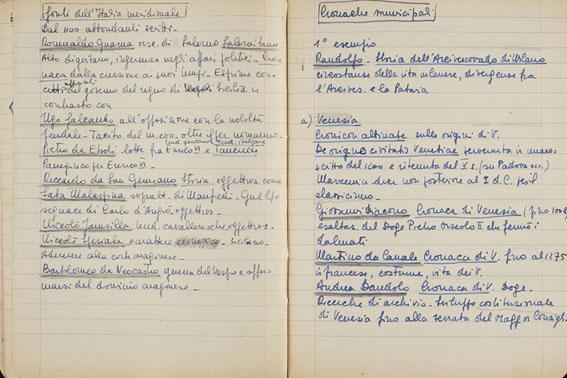 fonti dell'Italia meridionale
Dal 1100 abbondanti scritti.
Romualdo Guarna vesc. di Salerno Salernitano
Alto dignitario, ingerenza negli affari politici. Cro-
naca dalla creazione ai suoi tempi. Esprime con-
cetti del governo del regno di Sicilia in
contrasto con
Ugo Falcando all'opposizione con la nobiltà
feudale. Tacito del m. evo. oltre isper. normanno.
Pietro da Eboli lotte fra Enrico VI e Tancredi
Panegirico per Enrico VI.
Riccardo da San Germano Storia, oggettiva come
Saba Malaspina sopratt. di Manfredi. Guelfo
seguace di Carlo d'Angiò. oggettivo.
Nicolò Jamsilla cavalleresche. oggettivo.
Nicolò Speciale siciliano.
Aderisce alla corte aragonese.
Bartolomeo da Neocastro guerra del Vespro e affer-
marsi del dominio aragonese.
Cronache municipali
1° esempio
Landolfo. Storia dell'Arcivescovado di Milano
circostanze della vita milanese, divergenze fra
l'Arcives. e la Pataria
a) Venezia
Cronicon altinate sulle origini di V.
De origine civitatis Venetiae pervenuta in mano-
scritto del 1200 e ritenuta del X s. (su Padova ecc.)
non posteriore al I d.C. pel
classicismo.
Giovanni Diacono Cronaca di Venezia (fino 1008)
esaltaz. del Doge Pietro Orseolo II che fermò i
dalmati
Martino da Canale Cronaca di V. fino al 1275
in francese, costume, vita dei V.
Andrea Dandolo Cronaca di V. Doge.
Ricerche di archivio. Sviluppo costituzionale
di Venezia fino alla serrata del Maggior Consigl.